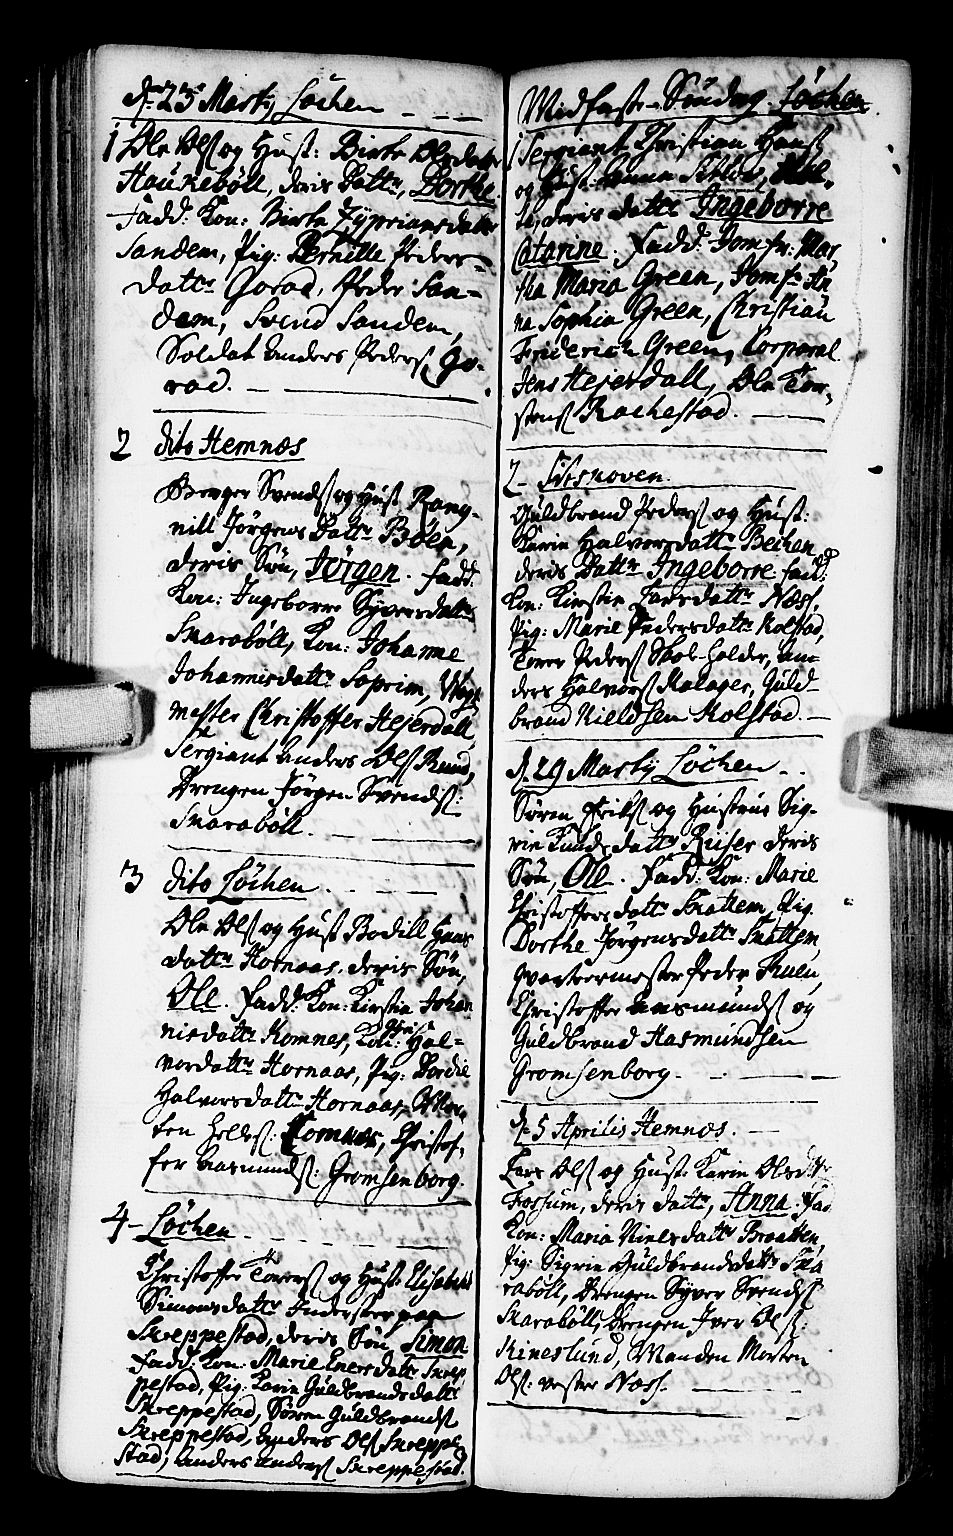 d. 25 Martij Löchen
1 Ole Ols og Hust: Birte Olsdatter
Haukeböll, deris Dattr, Dorthe
Fadd: Kon: Birte Zypriansdatter
Sandem, Pig: Pernille Peders-
datr Gorad, Peder San-
dem, Svend Sandem,
Soldat Anders Peders Go-
rad.
2 dito Hemnæs
Svends og Hust Rang-
nill Jörgens Dattr Böen,
deris Sön, Jörgen. Fadd:
Kon: Ingeborre Syversdattr
Skaraböll, Kon: Johanne
Johannisdattr Soprim,
mester Christoffer Hejerdall
Sergiant Anders Ols Ruud,
Drengen Jörgen Svends:
Skaraböll.
3 dito Löchen
Ole Ols og Hust Bodill Hans
dattr Hornaas, deris Sön,
Ole. Fadd: Kon: Kirstin Johan
nisdattr Komnæs, Kon: Hal-
vordattr Hornaas, Pig: Dordie
Halvorsdattr Hornaas,
ten Helles: Komnæs, Christof-
fer Aasmunds: Gromsenborg.
4 - Löchen
Christoffer Torers og Hust Elisabeth
Simonsdattr
Skreppestad, deris Sön, Simon
Fadd: Kon: Marie Enersdattr Skrep
pestad, Pig: Karin Guldbrandsdattr
Skreppestad, Sören Guldbrands
Skreppestad, Anders Ols Skreppe
stad, Anders Anders Skreppestad.
Midfaste-Söndag. Löchen
1 Sergiant Christian Hans
og Hust Anna
deris dattr Ingeborre
Catarine. Fadd: Jomfr: Mar
tha Maria Green, Jomfr An
na Sophia Green, Christian
Friderich Green, Corporal
Jens Hejerdall, Ole Tor-
stens Rachestad.
2 - Sitskoven.
Guldbrand Peders og Hust:
Karin Halvorsdattr Bechen,
deris Dattr Ingeborre. Fadd:
Kon: Kirstin Larsdattr Næss,
Pig: Marie Pedersdattr Kolstad,
Torer Peders Skol-Holder, An-
ders Halvors Kalager, Guld-
brand Nieldsen Kolstad.
d. 29 Martij Löchen
Sören Eriks og Hustrue Sig-
rin Knudsdattr Riiser deris
Sön, Ole. Fadd: Kon: Marie
Christoffersdattr Snattem, Pig.
Dorthe Jörgensdattr Snattem,
Qvarteermester Peder Kruen,
Christoffer Aasmunds og
Guldbrand Aasmundsen
Gromsenborg.
d. 5 Aprilis Hemnæs.
Lars Ols og Hust Karin Olsdattr
Fossum, deris dattr, Anna. Fad
Kon: Maria Nielsdattr Braatten,
Pig: Sigrin Guldbrandsdattr Ska
raböll, Drengen Syver Svends
Skaraböll, Drengen Iver Ols:
Kineslund, Manden Morten
Ols: vester Næss.